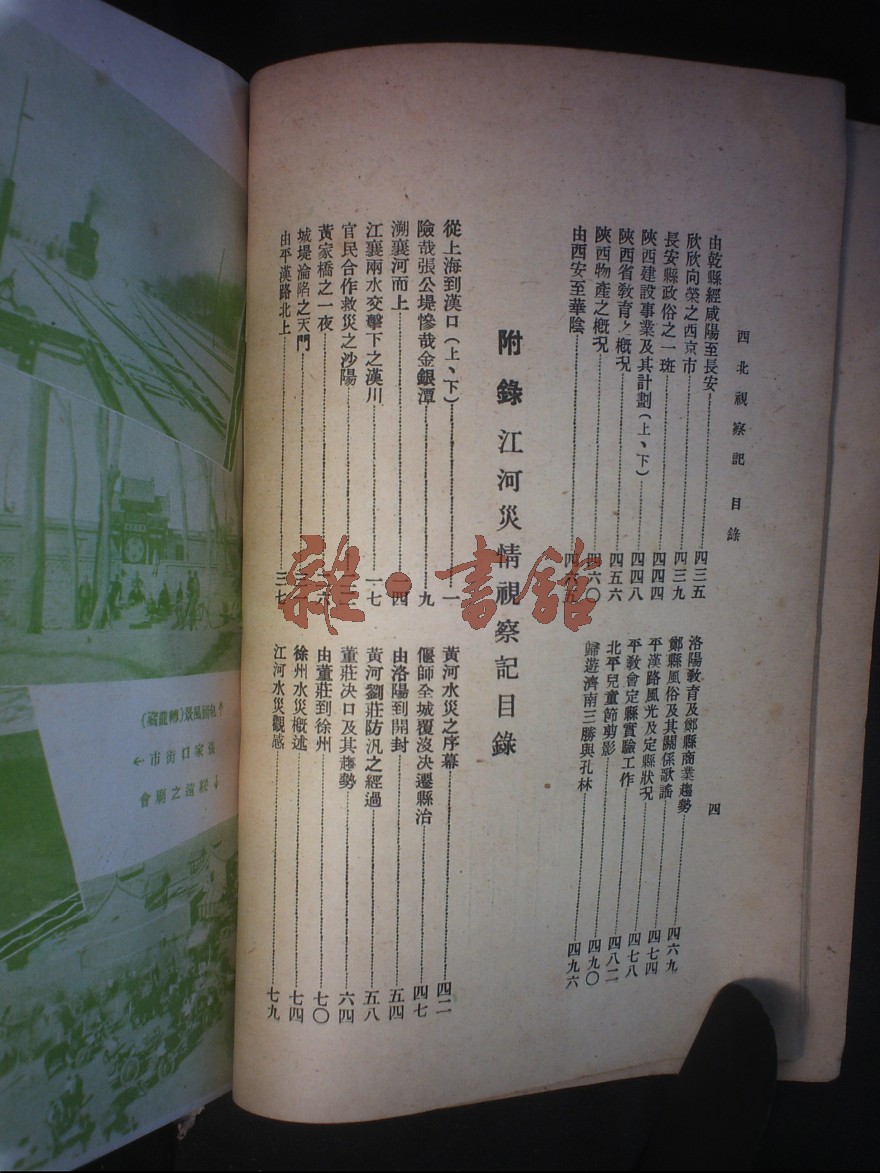 西北視察記 目錄
四
由乾縣經咸陽至長安……四三五
欣欣向榮之西京市……四三九
長安縣政俗之一班……四四四
陝西建設事業及其計劃(上、下)……四四八
陝西省敎育之槪況……四五六
陝西物產之槪況……四六〇
由西安至華陰……四六五
洛陽敎育及鄭縣商業趨勢……四六九
鄭縣風俗及其關係歌謠……四七四
平漢路風光及定縣狀況……四七八
平敎會定縣實驗工作……四八二
北平兒童節剪影……四九〇
歸遊濟南三勝與孔林……四九六
附錄 江河災情視察記目錄
從上海到漢口(上、下)……一
險哉張公堤慘哉金銀潭……九
溯襄河而上……一四
江襄兩水交擊下之漢川……一七
官民合作救災之沙陽
黃家橋之一夜
城堤淪陷之天門
由平漢路北上……三七
黃河水災之序幕……四二
偃師全城覆沒決遷縣治……四七
由洛陽到開封……五四
黃河劉莊防汎之經過……五八
董莊決口及其趨勢……六四
由董莊到徐州……七〇
徐州水災槪述……七四
江河水災觀感……七九
↑包頭風景(轉龍藏)
張家口街市←
↓綏遠之廟會
雜·書館